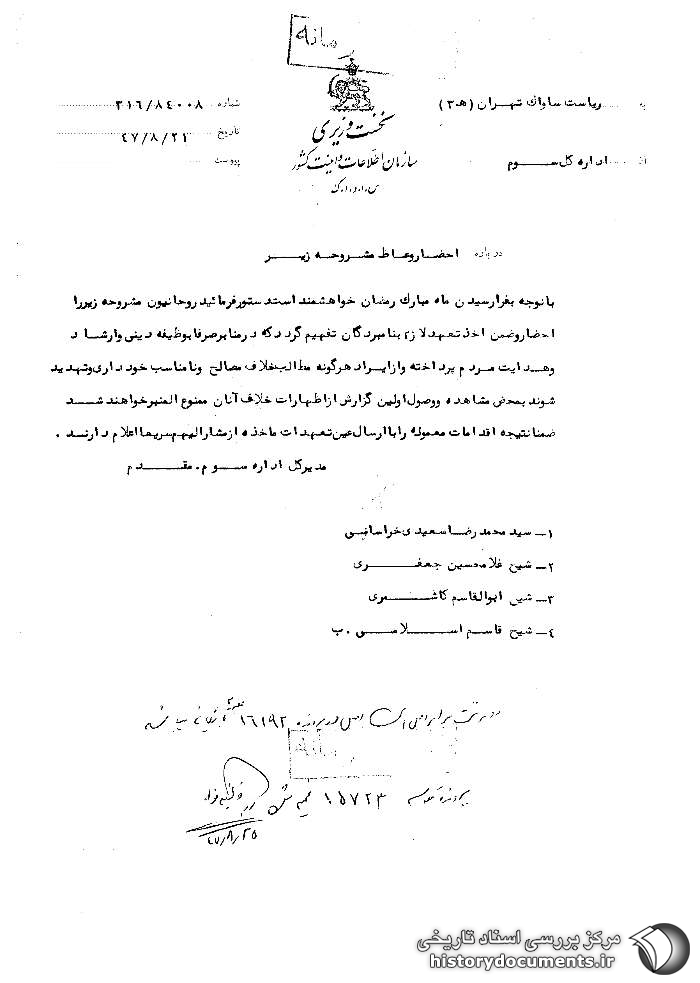 رمانه
به ریاست ساواك تهران (ه‍ ۳)
شماره ۳۱۶/۸۴۰۰۸
نخست وزیری
تاریخ ۴۷/۸/۲۱
از اداره کل سوم
سازمان اطلاعات و امنیت کشور
پیوست
س.ا.و.ا.ک
درباره احضار وعاظ مشروحه زیر
باتوجه بفرارسیدن ماه مبارك رمضان خواهشمند است دستور فرمائید روحانیون مشروحه زیر را
احضار و ضمن اخذ تعهد لازم بنامبردگان تفهیم گردد که در منابر صرفا بوظیفه دینی و ارشاد
و هدایت مردم پرداخته و از ایراد هرگونه مطالب خلاف مصالح و نامناسب خودداری و تهدید
شوند بمحض مشاهده و وصول اولین گزارش از اظهارات خلاف آنان ممنوع المنبر خواهند شد
ضمنا نتیجه اقدامات معموله را با ارسال عین تعهدات ماخذه از مشارالیهم سریعا اعلام دارند .
مدیرکل اداره سوم . مقدم
۱- سید محمد رضا سعیدی خراسانی
۲- شیخ غلامحسین جعفری
۳- شیخ ابوالقاسم کاشمری
۴- شیخ قاسم اسلامی . ب
۱۶۱۹۲
۱۵۷۲۳
۴۷/۸/۲۵
مرکز بررسی اسناد تاریخی
historydocuments.ir